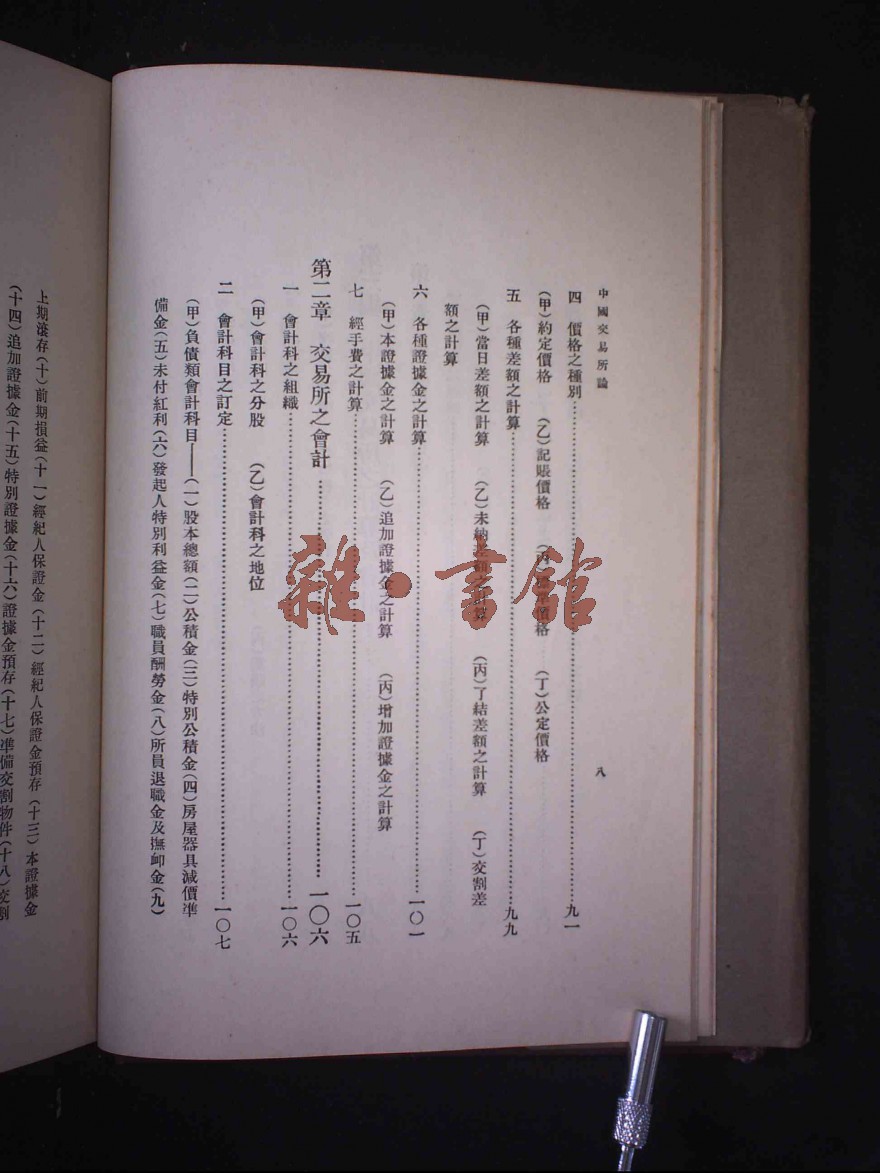 中國交易所論
八
四 價格之種別……九一
(甲)約定價格 (乙)記賬價格 (丙) 價格 (丁)公定價格
五 各種差額之計算……九九
(甲)當日差額之計算 (乙)未納差額之計算 (丙)了結差額之計算 (丁)交割差
額之計算
六 各種證據金之計算……一〇一
(甲)本證據金之計算 (乙)追加證據金之計算 (丙)增加證據金之計算
七 經手費之計算……一〇五
第二章 交易所之會計……一〇六
一 會計科之組織……一〇六
(甲)會計科之分股 (乙)會計科之地位
二 會計科目之訂定……一〇七
(甲)負債類會計科目——(一)股本總額(二)公積金(三)特別公積金(四)房屋器具減價準
備金(五)未付紅利(六)發起人特別利益金(七)職員酬勞金(八)所員退職金及撫卹金(九)
上期滾存(十)前期損益(十一)經紀人保證金(十二)經紀人保證金預存(十三)本證據金
(十四)追加證據金(十五)特別證據金(十六)證據金預存(十七)準備交割物件(十八)交割
雜·書館